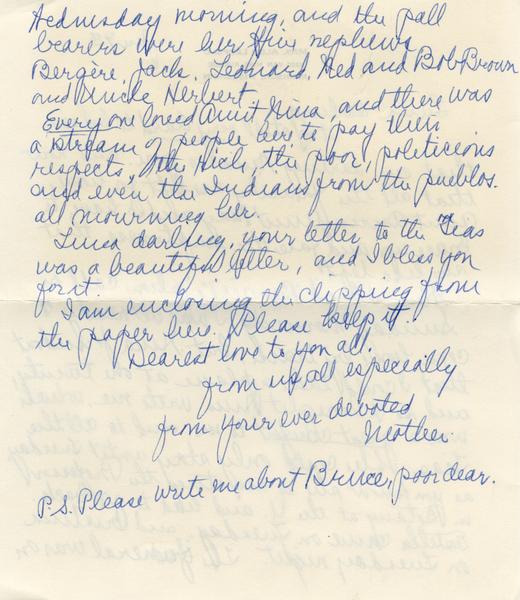 Wednesday morning, and the pall
bearers were her five nephews
Bergère, Jack, Leonard, Ned and Bob Brown
and Uncle Herbert.
Every one loved Aunt Nina, and there was
a stream of people here to pay their
respects, the rich, the poor, politicians
and even the Indians from the pueblos.
all mourning her.
darling, your letter to the Teas
was a beautiful letter, and I bless you
for it.
I am enclosing the clipping from
the paper here. Please keep it
Dearest love to you all.
from us all especially
from your ever devoted
Mother.
P.S. Please write me about Bruce, poor dear.